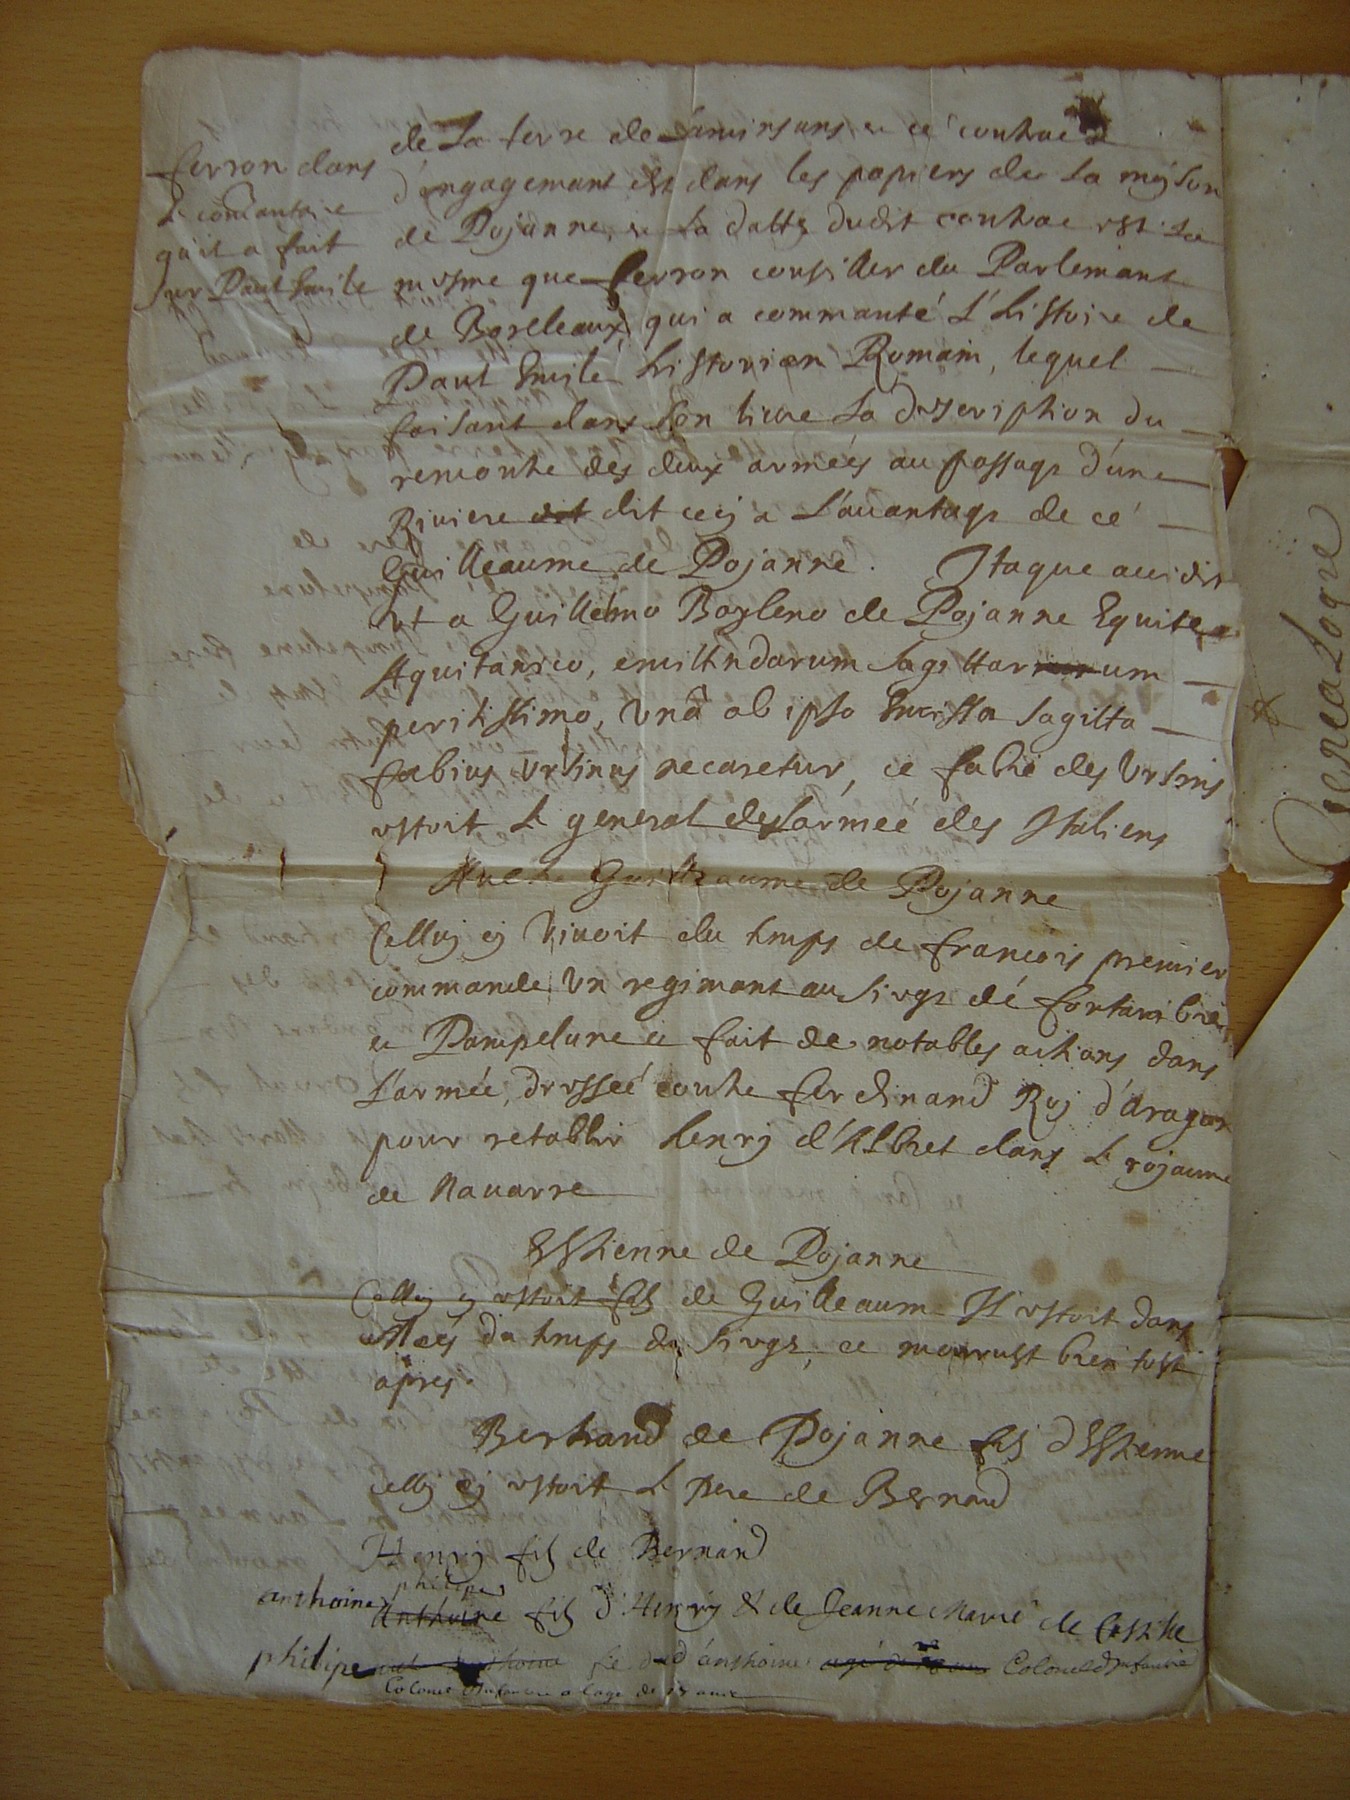 ferron dans
le comantaire
qu'il a fait
sur Paul Emile
de La terre de et ce contract
d'engagemant est dans les papiers de La maison
de Pojanne, et La datte dudit contrac est La
mesme que ferron consiller du Parlemant
de Bordeaux, qui a commanté L'histoire de
Paul Emile historien Romain, lequel
faisant dans son livre La description du
rencontre des deux armées au passage d'une
Riviere dit cecy a L'avantage de cé
Guilleaume de Pojanne. Itaque accidit
ut a Guillelmo Bayleno de Pojanne Equite
Aquitanico, emittendarum sagittarum
peritissimo, Una ab ipso Emissa sagitta
fabius Ursinus necaretur, ce fabie des Ursins
estoit Le general de L'armée des Italiens
Guilleaume de Pojanne
Celluy cy Vivoit du temps de francois premier
commande Un regimant au siege de fontarabie
et Pampelune et fait de notables actions dans
L'armée, dressée contre ferdinand Roy d'aragon
pour retablir henry d'Albret dans Le royaume
de Navarre
Esthienne de Pojanne
Celluy cy estoit fils de Guilleaume Il estoit dans
du temps du siege, et mourust bien tost
apres.
Bertrand de Pojanne fils d'Esthienne
Celluy cy estoit Le Pere de Bernard
Henry fils de Bernard
philipe
anthoine Anthoine fils d'Henry & de Jeanne Marie de Castille
philipe fils dud anthoine Colonel d'Infanterie
Colonel d'Infanterie a l'age de 15 ans
Genealogie